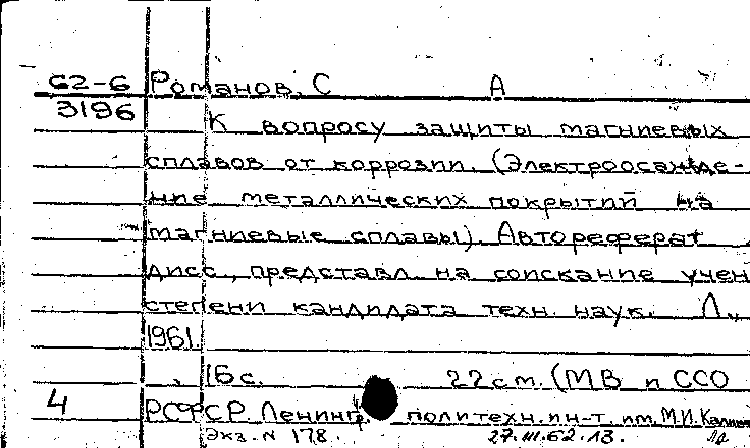 62-6 Романов, С А
3196
К вопросу защиты магниевых
сплавов от коррозии. (Электроосажде-
ние металлических покрытий на
магниевые сплавы). Автореферат
дисс., представл. на соискание учен
степени кандидата техн. наук. Л.,
1961.
16 с. 22 см. (МВ и ССО
4 РСФСР. Ленингр. политехн. ин-т. им. М.И. Калин
Экз. N 178. 27.III.62.13.